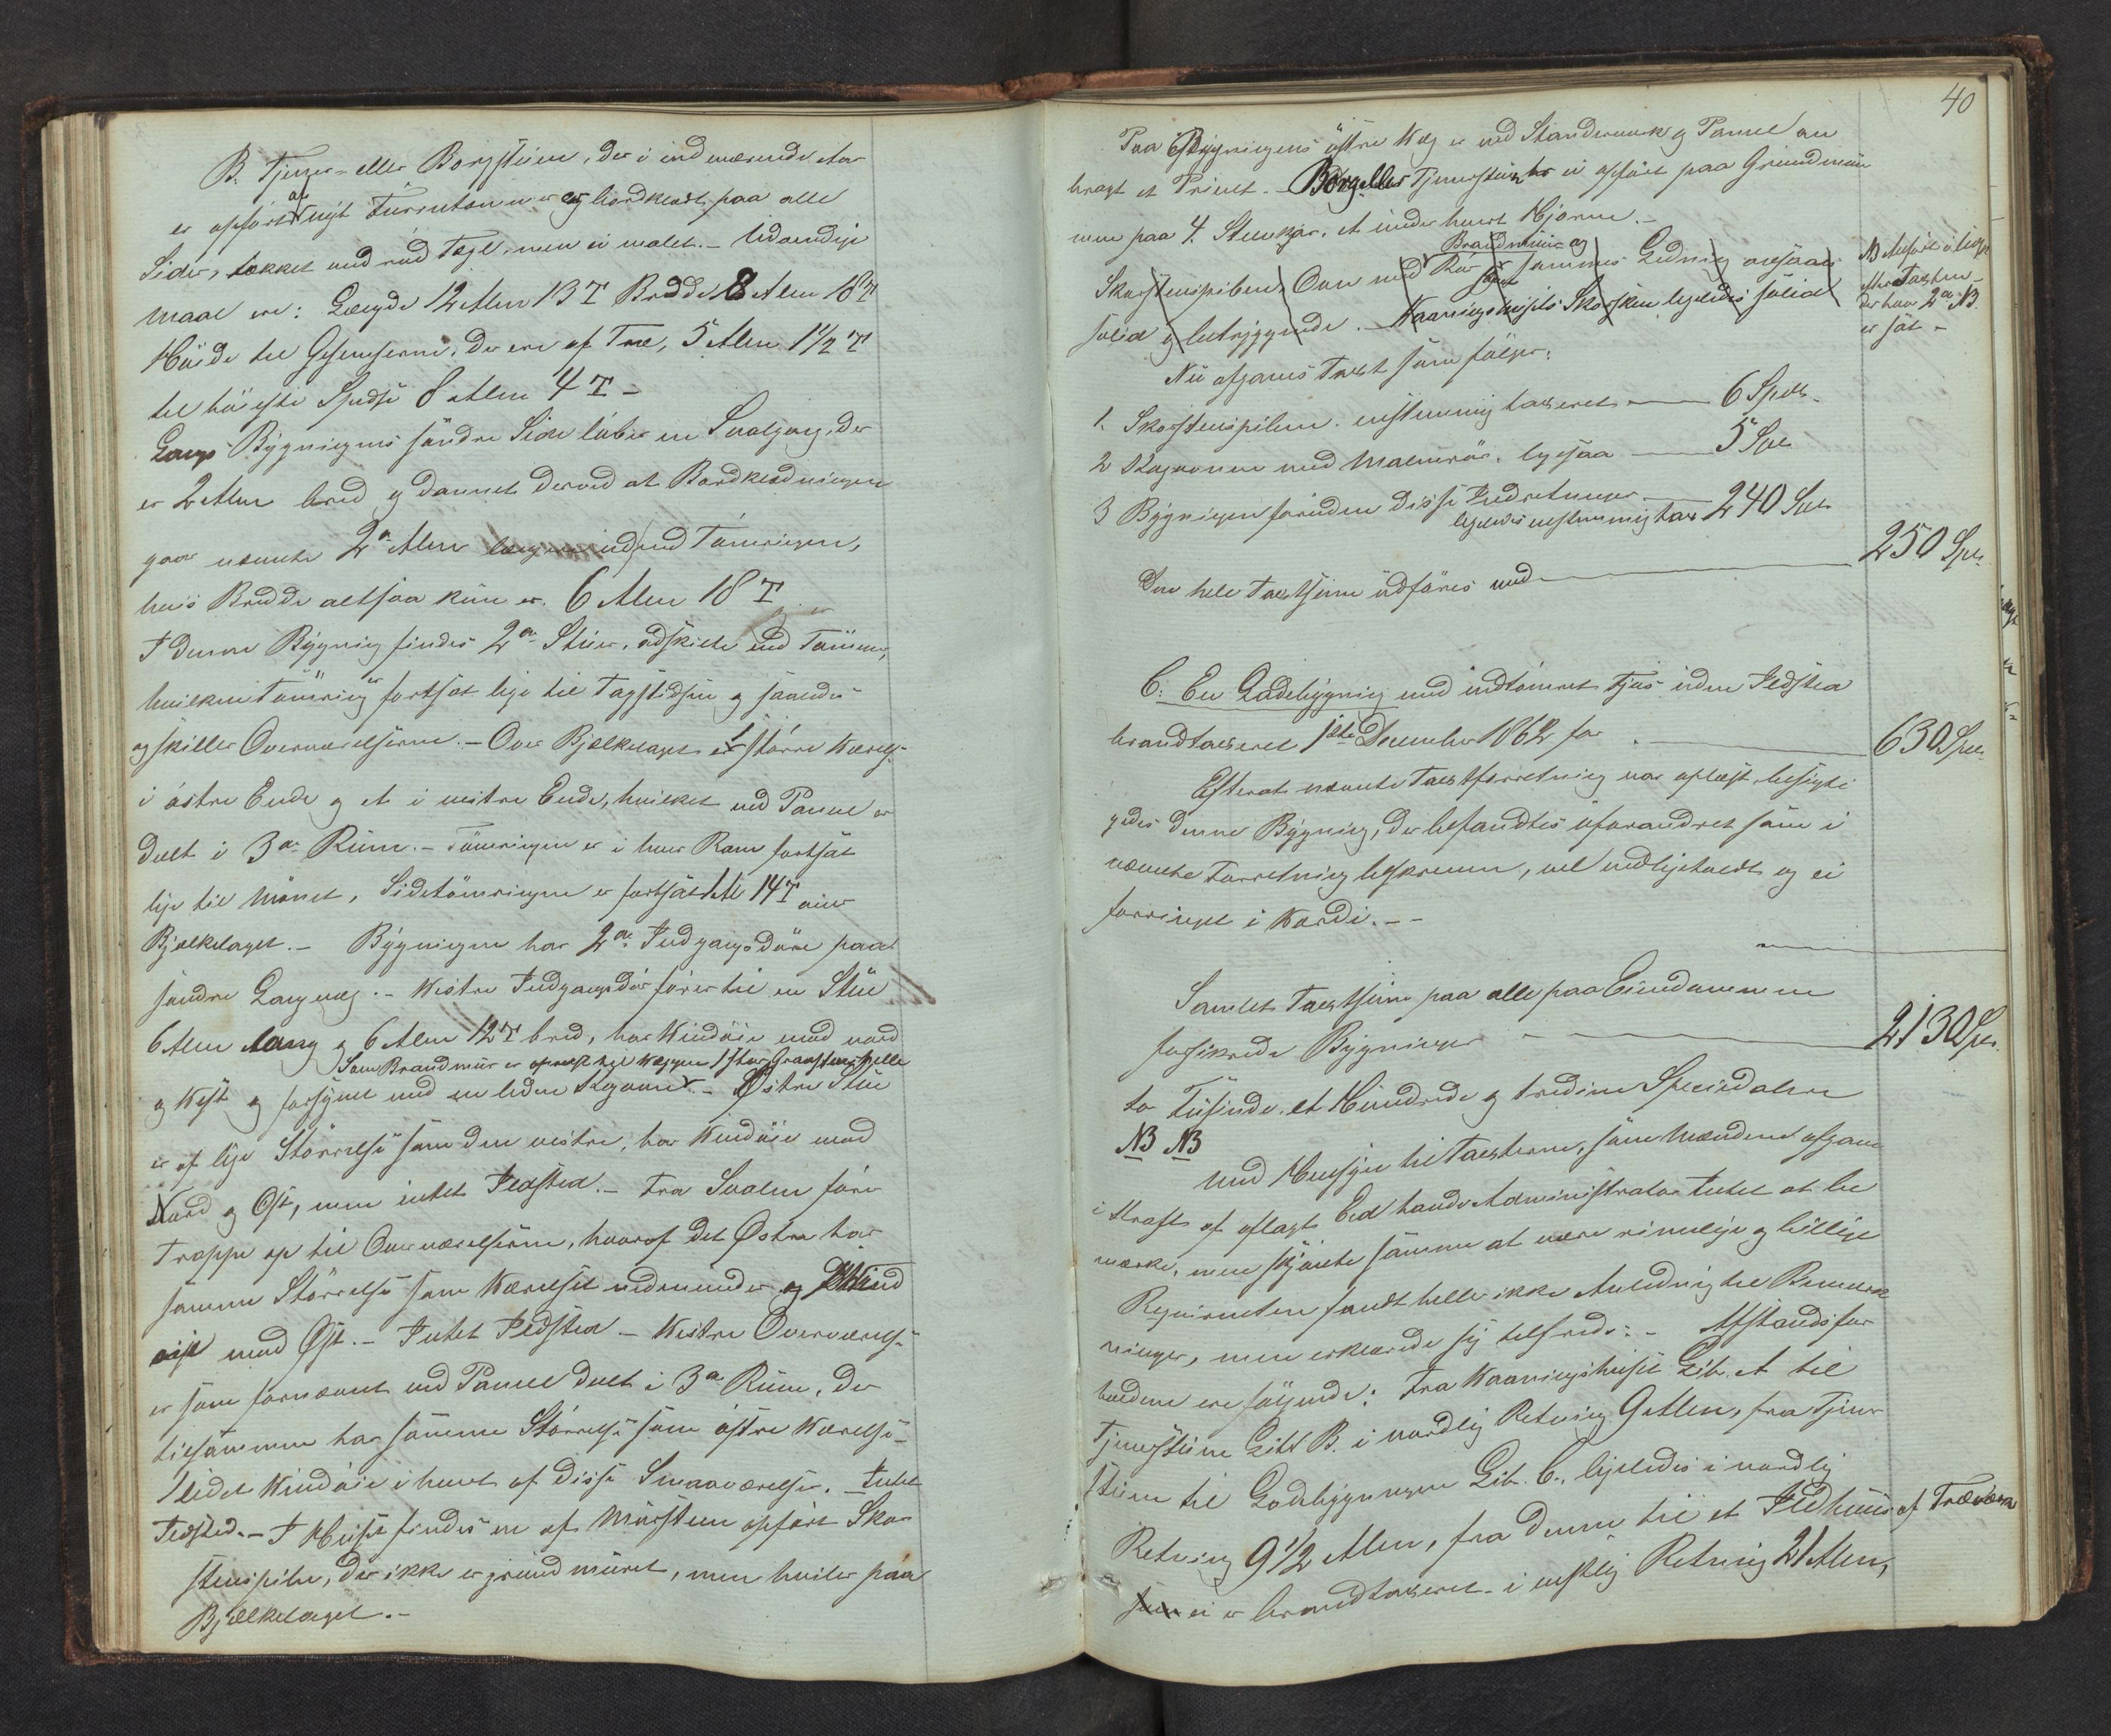 B. Tjener- eller Borgstuen, der i indeværende Aar
er opført af nyt Furrutømmer og bordklædt paa alle
Sider, tækket med rød Tægl, men ei malet. – Udvendige
Maal ere: Længde 12 Alen 13 T Bredde 8 Alen 18 T
Høide til Gesimserne, der ere af Træ, 5 Alen 1 1/2 T
til høieste Spidse 8 Alen 4 T –
Langs Bygningens søndre Side løber en Svalgang, der
er 2 Alen bred og dannet derved at Bordklædningen
gaar nævnte 2de Alen længere ud end Tømringen,
hvis Bredde altsaa kun er 6 Alen 18 T
I denne Bygning findes 2de Stuer, adskilte ved Tømmer,
hvilken Tømring er fortsat lige til Tagspidsen og saaledes
og skiller Overværelserne. – Over Bjelkelaget er 1 større Værelse
i østre Ende og et i vestre Ende, hvilket ved Panel er
deelt i 3de Rum. – Tømringen er i hver Ram fortsat
lige til Mønet, Sidetømringen er fortsat 1 Al 14 T over
Bjelkelaget. – Bygningen har 2de Indgangsdøre paa
søndre Langvæg. – Vestre Indgangsdør fører til en Stue
6 Alen lang og 6 Alen 12 T bred, har Vinduer mod Nord
Som Brandmuur er opreist ved Væggen 1 stor Graasteenshelle
og Vest og forsynet med en liden Kogeovn. – Østre Stue
er af lige Størrelse som den vestre, har Vinduer mod
Nord og Øst, men intet Ildsted. – Fra Svalen fører
Trappe op til Overværelserne, hvoraf det Østre har
samme Størrelse som Værelset nedenunder og Vind
uer mod Øst. – Intet Ildsted – Vestre Overværelse
er som fornævnt ved Panel deelt i 3de Rum, der
tilsammen har samme Størrelse som østre Værelse –
1 lidet Vindue i hvert af disse Smaaværelser. – Intet
Ildsted. – I Huset findes en af Muursteen opført Skor
steenspibe, der ikke er grundmuret, men hviler paa
Bjælkelaget. –
40
Paa Bygningens østre Væg er ved Standværk og Panel an
bragt et Privet. – Borg- eller Tjenerstuen er ei opført paa Grundmuur
men paa 4. Steenkar, et under hvert Hjørne. –
Brandmuur og
Skorsteenspiben, Ovn med Rør og sammes Ledning ansaaes
solid og betryggende. – Vaaningshusets Skorsteen ligeledes solid
NB
Taxten
der hvor 2de NB
er sat –
Nu afgaves Taxt som følger:
1. Skorsteenspiben. eenstemmig taxeret — 6 Spdlr.
2 Kogeovnen med Malmrør. ligesaa — 5 Spd
3 Bygningen foruden disse Indretninger —
ligeledes eenstemmig tax 240 Spd
Den hele Taxtsum udføres med — 250 Spd.
C. En Ladebygning med indtømret Fjøs uden Ildsted
brandtaxeret 1ste December 1862 for — 630 Spd.
Efterat nævnte Taxtforretning var oplæst besigti
gedes denne Bygning, der befandtes uforandret som i
nævnte Forretning beskreven, vel vedligeholdt og ei
forringet i Værdi. –
Samlet Taxtsum paa alle paa Eiendommen
forsikrede Bygninger — 2130 Spd.
to Tusinde, et Hundrede og tredive Speciedaler
NB NB
Med Hensyn til Taxterne, som Mændene afgave
i Kraft af aflagt Eed havde Administrator Intet at be
mærke, men skjønte samme at være rimelige og billige
Reqvirenten fandt heller ikke Anledning til Bemærk
ninger, men erklærede sig tilfreds. – Afstandsfor
holdene ere følgende: Fra Vaaningshuset Lit. A til
Tjenerstuen Litt B. i nordlig Retning 9 Alen, fra Tjener
stuen til Ladebygningen Lit. C., ligeledes i nordlig
Retning 9 1/2 Alen, fra denne til et Ildhuus af Træværk
ei er brandtaxeret i vestlig Retning 21 Alen,